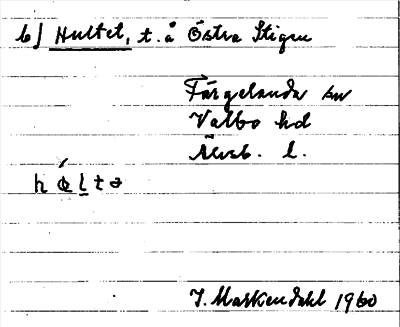 b) Hultet, t. å Östra Stigen
Färgelanda sn
Valbo hd
Älvsb. l.
hǿl̲tə
J. Markendahl 1960